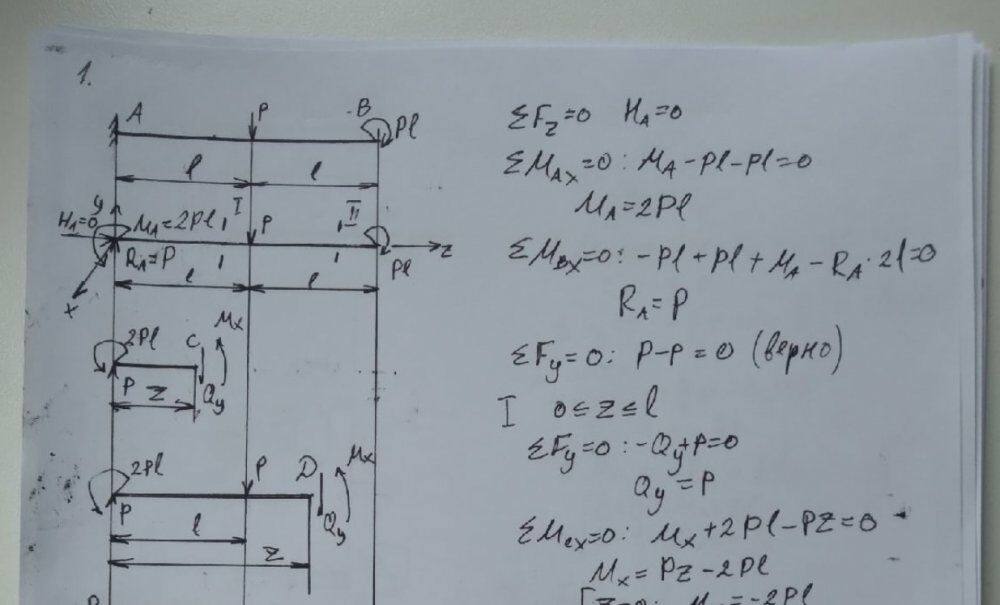 1.
A P B Pl
l l
y I II
H_A=0 M_A=2Pl P z
R_A=P Pl
l l
x
2Pl C M_x
P z Q_y
2Pl P D M_x
P Q_y
l
z
ΣF_z=0 H_A=0
ΣM_Ax=0: M_A-Pl-Pl=0
M_A=2Pl
ΣM_Bx=0: -Pl+Pl+M_A-R_A·2l=0
R_A=P
ΣF_y=0: P-P=0 (верно)
I 0≤z≤l
ΣF_y=0: -Q_y+P=0
Q_y=P
ΣM_cx=0: M_x+2Pl-Pz=0
M_x=Pz-2Pl
z=0: M =-2Pl